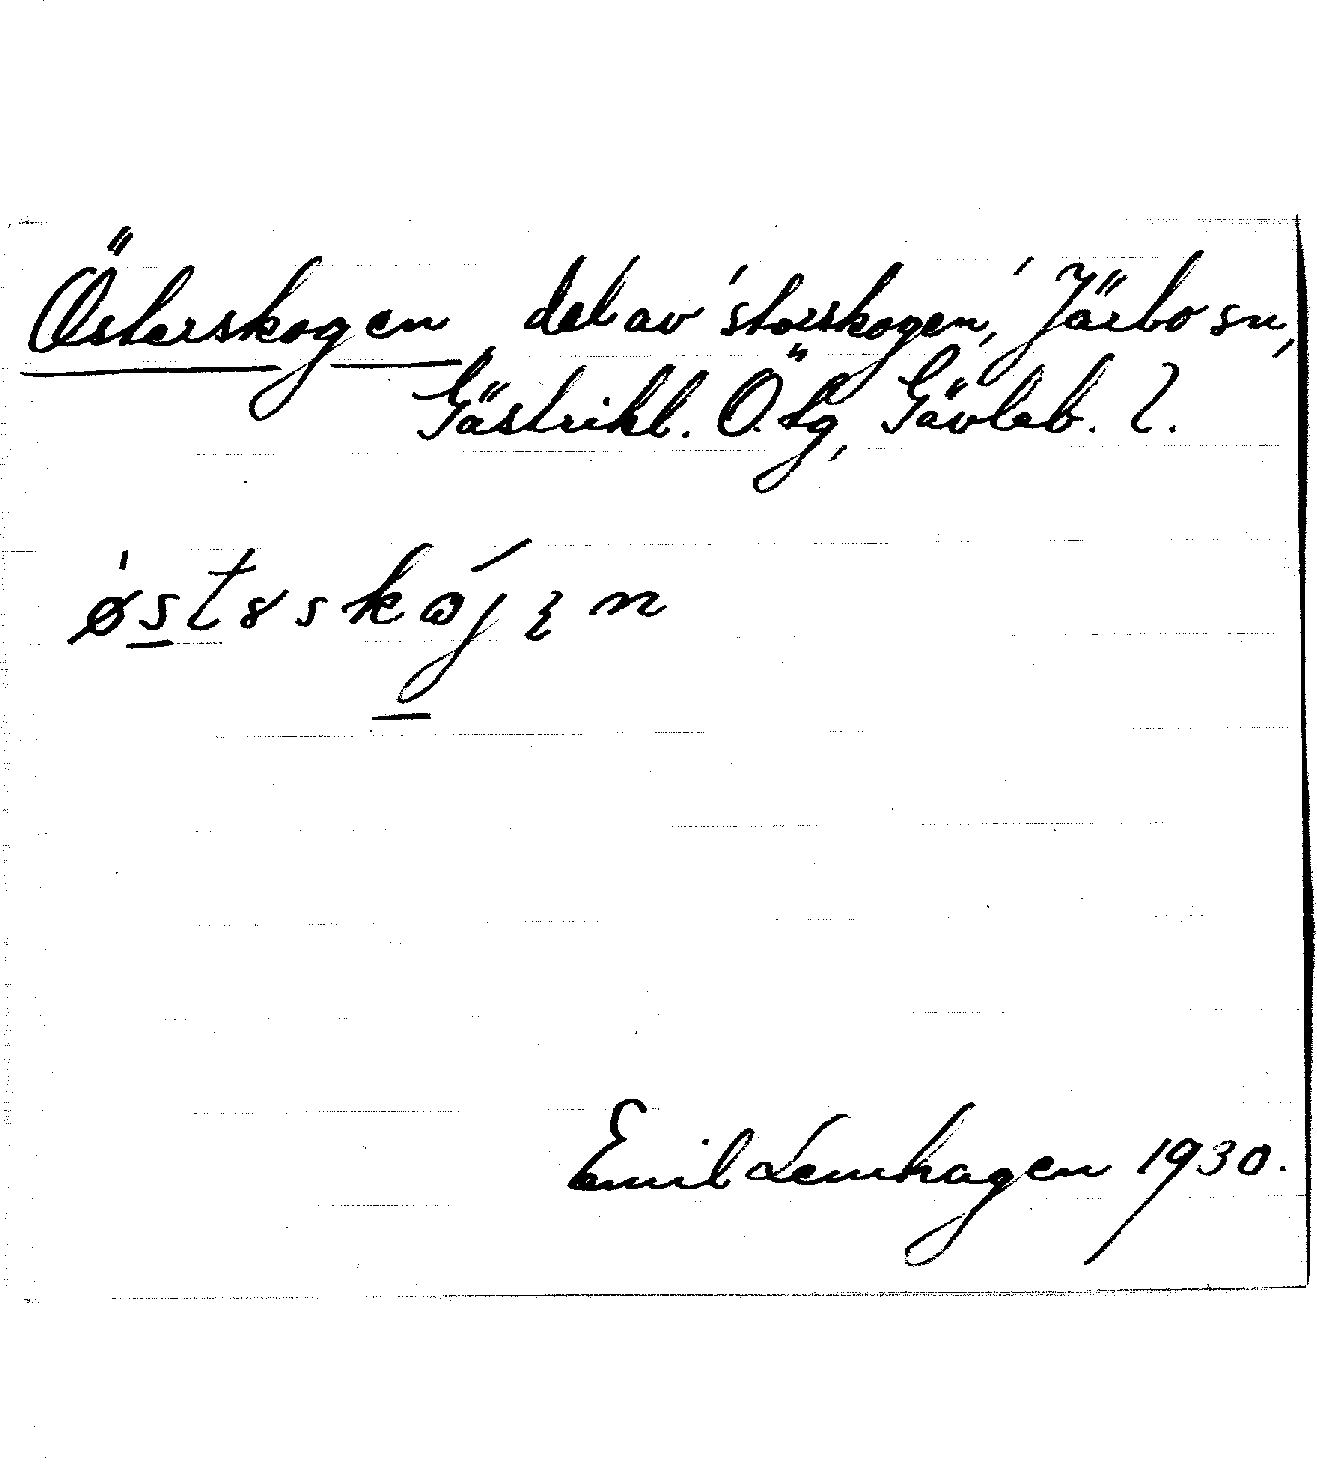 Österskogen, del av 'storskogen,' Järbo sn,
Gästrikl. Ö. tg, Gävleb. l.
Emil Lemhagen 1930.